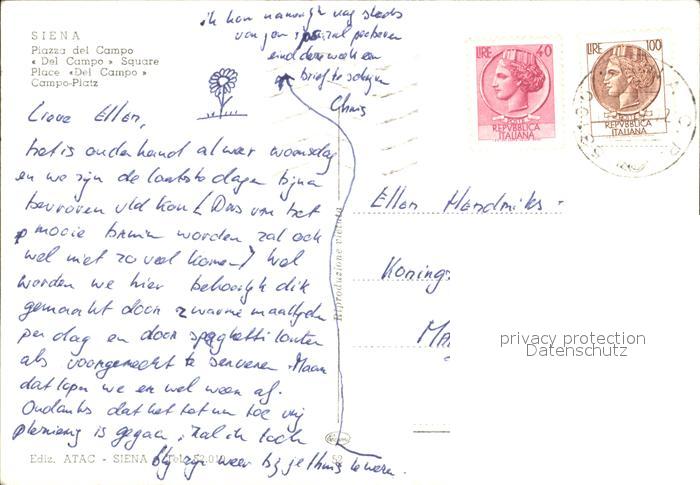 SIENA
Piazza del Campo
« Del Campo » Square
Place «Del Campo »
Campo-Platz
ik kan namelijk nog steeds
van jou
eind deze week een
brief te schrijven
Chris
Lieve Ellen,
het is onderhand al weer woensdag
en we zijn de laatste dagen bijna
bevroren v/d kou! Dus van het
mooie bruin worden zal ook
wel niet zo veel komen! Wel
worden we hier behoorlijk dik
gemaakt door 2 warme maaltijden
per dag en door spaghetti
als voorgerecht te serveren. Maar
dat lopen we er wel weer af.
Ondanks dat het tot nu toe vrij
plezierig is gegaan, zal ik toch
blij zijn weer bij je thuis te wezen.
Ediz. ATAC - SIENA
52
Riproduzione vietata
LIRE 40
POSTE
REPVBBLICA
ITALIANA
LIRE 100
POSTE
REPVBBLICA
ITALIANA
Ellen Hendriks
Konings
Ma
privacy protection
Datenschutz